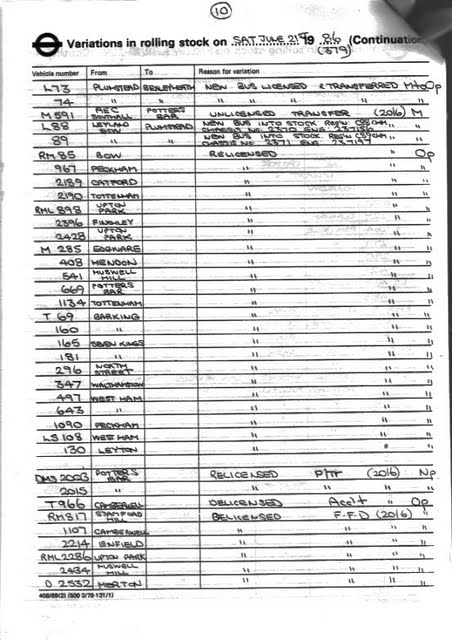 10
Variations in rolling stock on SAT JUNE 21st 19 86 (Continuation
(379)
Vehicle number From To Reason for variation
L73 PLUMSTEAD BEXLEYHEATH NEW BUS LICENSED & TRANSFERRED M to Op
74 " " " " " "
M 591 AEC SOUTHALL POTTERS BAR UNLICENSED TRANSFER (2016) M
L88 LEYLAND BOW PLUMSTEAD NEW BUS INTO STOCK REG'N C88CHM "
CHASSIS No 2370 ENG
89 " " NEW BUS INTO STOCK REG'N C89CHM "
CHASSIS No 2371 ENG
RM 85 BOW RELICENSED " Op
967 PECKHAM " " "
2189 CATFORD " " "
2190 TOTTENHAM " " "
RML 898 UPTON PARK " " "
2396 FINCHLEY " " "
2428 UPTON PARK " " "
M 285 EDGWARE " " "
408 HENDON " " "
541 MUSWELL HILL " " "
669 POTTERS BAR " " "
1134 TOTTENHAM " " "
T 69 BARKING " " "
160 " " " "
165 SEVEN KINGS " " "
181 " " " "
296 NORTH STREET " " "
347 WALTHAMSTOW " " "
497 WEST HAM " " "
643 " " " "
1090 PECKHAM " " "
LS 108 WEST HAM " " "
130 LEYTON " " "
DMS 2003 POTTERS BAR RELICENSED (2016) Np
2015 " " " " "
T 966 CAMBERWELL DELICENSED Acc/t Op
RM 817 STAMFORD HILL DELICENSED F.F.D (2016) "
1107 CAMBERWELL " " " "
2214 ENFIELD " " " "
RML 2286 UPTON PARK " " " "
2434 MUSWELL HILL " " " "
D 2532 MERTON " " " "